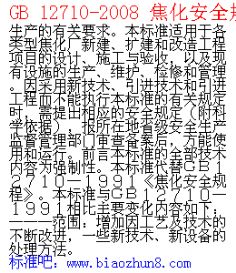 GB 12710-2008 焦化安全规
生产的有关要求。本标准适用于各
类型焦化厂新建、扩建和改造工程
项目的设计、施工与验收，以及现
有设施的生产、维护、检修和管理
。因采用新技术、引进技术和引进
工程而不能执行本标准的有关规定
时，需提出相应的安全规定（附科
学依据），报所在地省级安全生产
监督管理部门审查备案后，方能使
用和运行。前言本标准的全部技术
内容为强制性。本标准代替GB1
2710—1991《焦化安全规
程》。本标准与GB12710—
1991相比主要变化内容如下：
———范围：增加因工艺及技术的
不断改进，一些新技术、新设备的
处理方法。
标准吧：www.biaozhun8.com